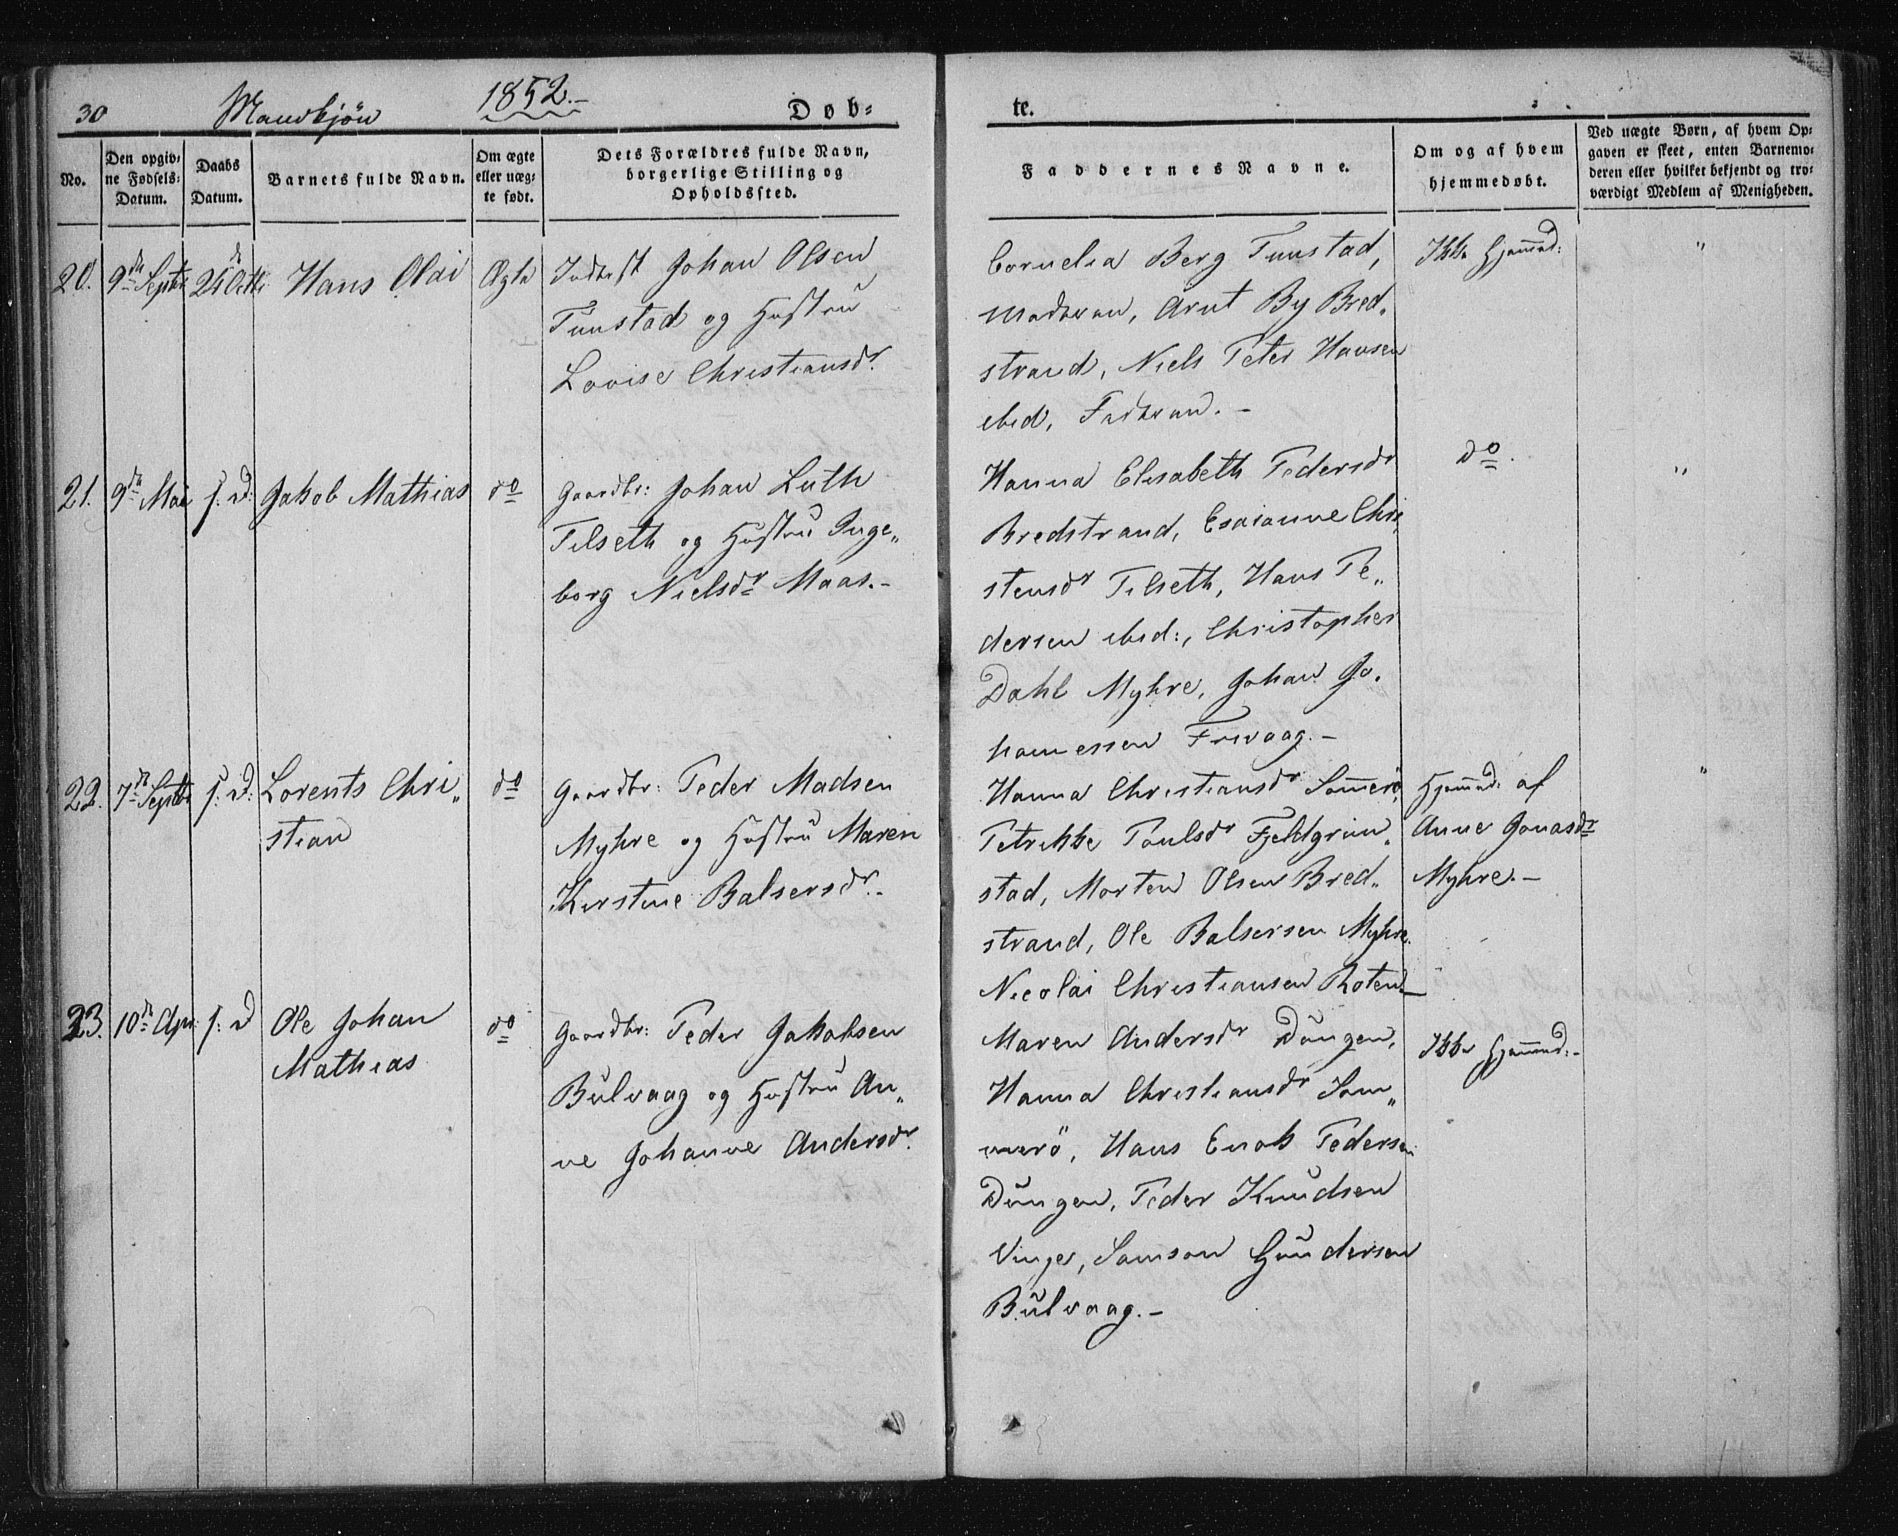 30 Mandkjøn 1852.- Døb- te.
No.
Den opgiv-
ne Fødsels-
Datum.
Daabs
Datum.
Barnets fulde Navn.
Om ægte
eller uæg-
te født.
Dets Forældres fulde Navn,
borgerlige Stilling og
Opholdssted.
Faddernes Navne.
Om og af hvem
hjemmedøbt.
Ved uægte Børn, af hvem Op-
gaven er skeet, enten Barnemo-
deren eller hvilket bekjendt og tro-
værdigt Medlem af Menigheden.
20. 9de Septbr 24d Octbr Hans Olai Ægte
Inderst Johan Olsen
Tunstad og Hustru
Lovise Christiansdr.
Cornelia Berg Tunstad,
Moderen, Arnt By Bred„
strand, Niels Peter Hansen
ibid, Faderen. –
Ikke Hjemmed:
"
21. 9de Mai s. D: Jakob Mathias do
Gaardbr: Johan Luth
Tilseth og Hustru Inge„
borg Nielsdr Maas.-
Hanna Elisabeth Pedersdr
Bredstrand, Esaianne Chri
stensdr Tilseth, Hans Pe„
dersen ibid:, Christopher
Dahl Myhre, Johan Jo„
hannessen Frivaag.-
do.
"
22. 7de Septbr s: D: Lorents Chri„
stian
do
Gaardbr: Peder Madsen
Myhre og Hustru Maren
Kirstine Balsersdr.-
Hanna Christiansdr Sommerö,
Petrikke Poulsdr Fjeldgrim„
stad, Morten Olsen Bred„
strand, Ole Balsersen Myhre.
Nicolai Christiansen Roten-
Hjemmd: af
Anne Jonasdr
Myhre.-
"
23. 10de Apr s: D Ole Johan
Mathias
do
Gaardbr: Peder Jakobsen
Bulvaag og Hustru An„
ne Johanne Andersdr.
Maren Andersdr Dungen,
Hanna Christiansdr Som„
merö, Hans Enok Pedersen
Dungen, Peder Knudsen
Vinge, Samson Gundersen
Bulvaag.-
Ikke Hjemmed:-